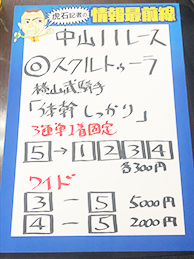 虎石記者の
情報最前線
中山11レース
◎スクルトゥーラ
横山武騎手
「体幹しっかり」
3連単1着固定
5→1234
各300円
ワイド
3-5 5000円
4-5 2000円